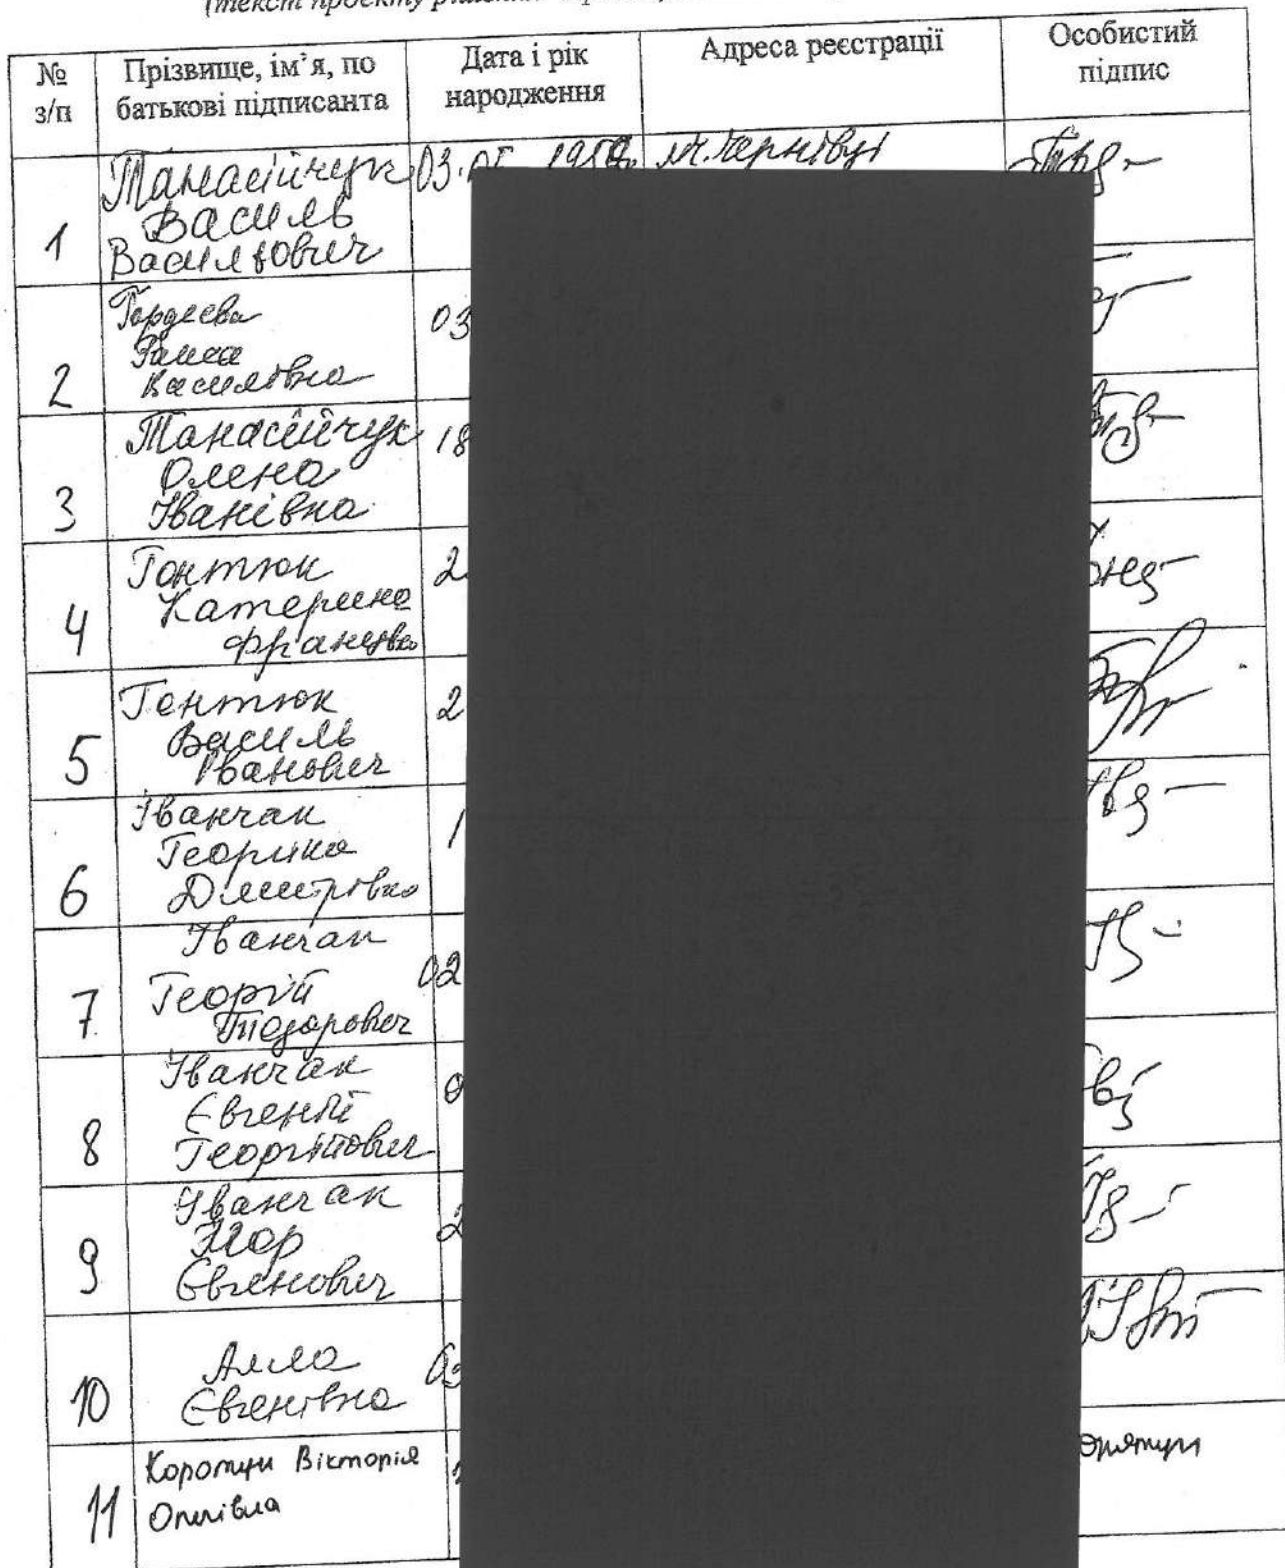 (текст проекту рішення
№ з/п
Прізвище, ім’я, по батькові підписанта
Дата і рік народження
Адреса реєстрації
Особистий підпис
1
Танасійчук
Василь
Васильович
03.
м. Чернівці
2
Гордеева
Раиса
Василівна
03
3
Танасійчук
Олена
Іванівна
18
4
Гонтюк
Катерина
2
5
Гонтюк
Василь
Іванович
2
6
Іванчак
Георгіна
Дмитрівна
1
7
Іванчак
Георгій
Тодорович
02
8
Іванчак
Євгеній
Георгійович
0
9
Іванчак
Ігор
Євгенович
2
10
Алла
Євгенівна
03
11
Вікторія